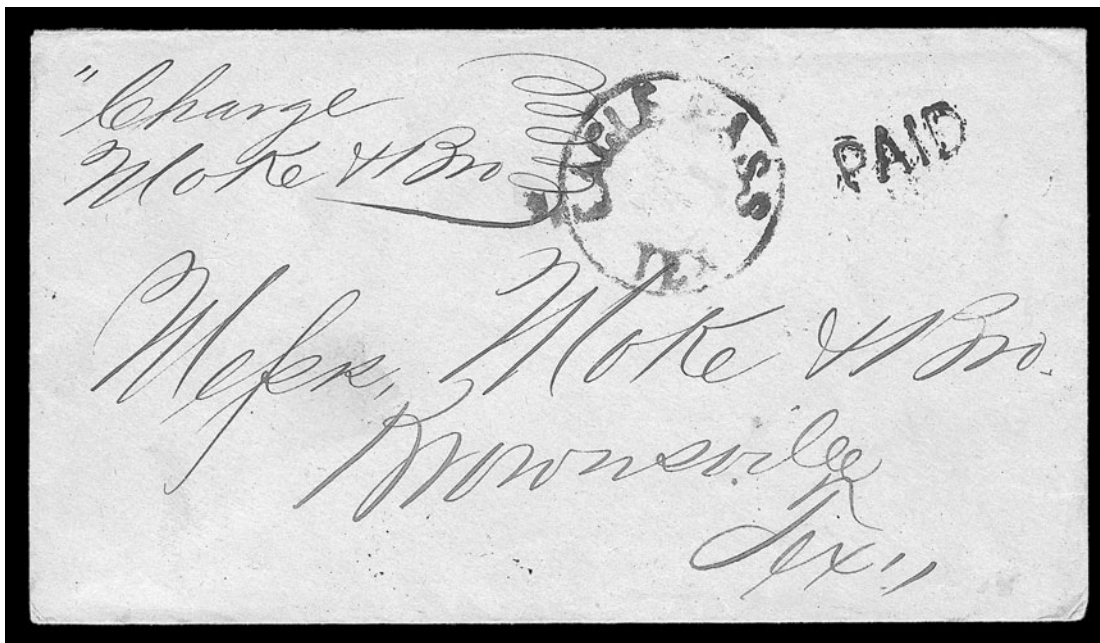 "Charge
Moke & Bro
EAGLE PASS
TEX
PAID
Messrs, Moke & Bro.
Brownsville
Tex,,